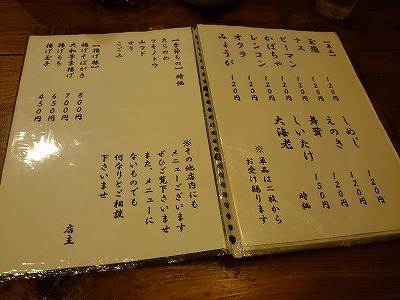 【単品】
玉葱 120円
ナス 120円
ピーマン 120円
かぼちゃ 120円
レンコン 120円
オクラ 120円
みょうが 120円
しめじ 120円
えのき 120円
舞茸 120円
しいたけ 150円
大海老 時価
※単品は二枚から
お受け賜ります
【季節もの】時価
たらのめ
フキノトウ
山ウド
せり
こごみ
【揚げ物】
揚げそばがき 800円
大和芋素揚げ 700円
揚げもち 650円
揚げ玉子 450円
※その他店内にも
メニューございます
ぜひご覧下さいませ
また、メニューに
ないものでも
何なりとご相談
下さいませ
店主